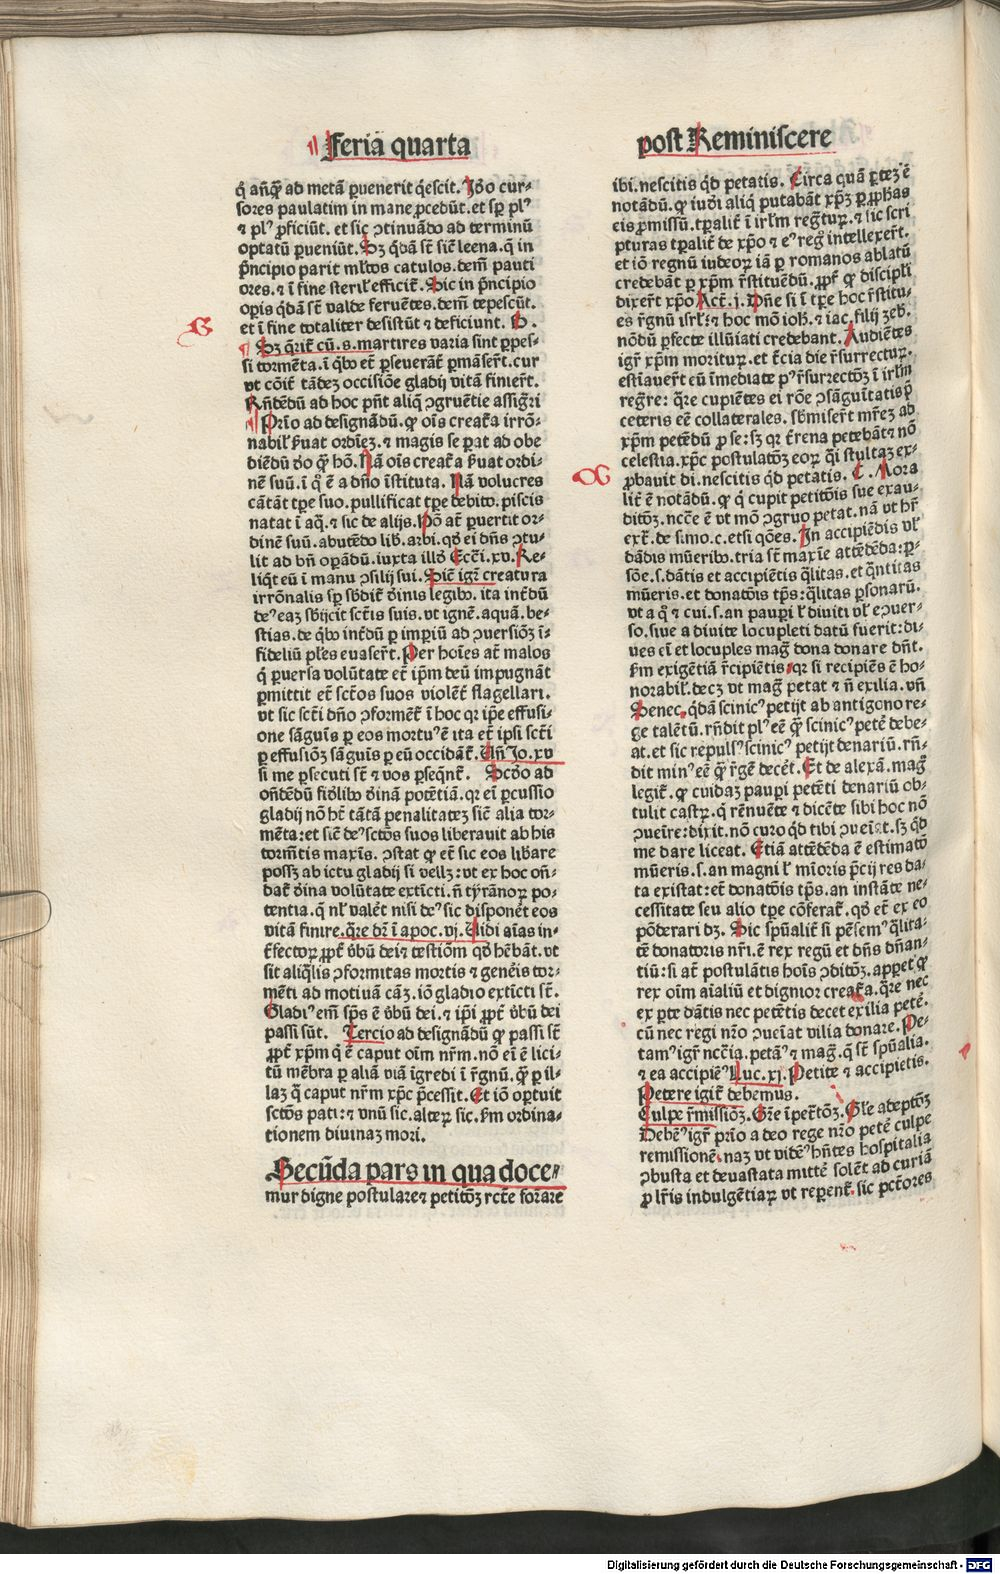 Feria quarta
post Reminiscere
q̇ añq̄ȝ ad metā ꝑuenerit q̇escit. Jdo cur⸗
sores paulatim in mane ꝓcedūt. et sꝑ plꝰ
⁊ plꝰ ꝓficiūt. et sic ↄtinuādo ad terminū
optatū ꝑueniūt. Sȝ q̇dā sūt sicut leena. q̄ in
p̄ncipio parit ml̓tos catulos. dem̄ pauti
ores. ⁊ ī fine steril̓ efficit̄. Sic in p̄ncipio
opis q̇dā st̄ valde feruētes. dem̄ tepescūt.
et ī fine totaliter desistūt ⁊ deficiunt. D.
G
Sȝ q̄rit̄ cū .s. martires varia sint ꝑpes⸗
si tormēta. ī q̇bo et̄ ꝑseuerāt̄ ꝑmāser̄t. cur
vt cōit̄ tādeȝ occisiōe gladij vitā finier̄t.
Rn̄dēdū ad hoc pn̄t aliq̄ ↄgruētie assig̃ri
Prīo ad designādū. ꝙ oīs creat̄a irrō⸗
nabil̓ ẜuat ordīeȝ. ⁊ magis se ꝑat ad obe
diēdū deo q̄ȝ hō. Nā oīs creat̄a ẜuat ordi⸗
nē suū. ī q̇ ē a dn̄o īstituta. Nā volucres
cātāt tꝑe suo. pullificat tꝑe debito. piscis
natat ī aq̄. ⁊ sic de alijs. Hō at̄ ꝑuertit or⸗
dinē suū. abutēdo lib̄. arbi. qd̓ ei dn̄s ↄtu⸗
lit ad bn̄ oꝑādū. iuxta illd̓ Ecc̄i. xv. Re⸗
liq̇t eū ī manu ↄsilij sui. Sicut igr̄ creatura
irrōnalis sꝑ sb̓dit̄ d̓inis legibo. ita int̓dū
deꝰ eaȝ sb̓ijcit sct̄is suis. vt ignē. aquā. be⸗
stias. de q̇bo int̓dū ꝑ imꝑiū ad ↄuersiōȝ ī⸗
fideliū pl̓es euaser̄t. Per hoīes at̄ malos
q̇ ꝑuersa volūtate et̄ ip̄m deū impugnāt
ꝑmittit et̄ sct̄os suos violēt̄ flagellari.
vt sic sct̄i dn̄o ↄformēt̄ ī hoc qr ip̄e effusi⸗
one sāguīs ꝑ eos mortuꝰ ē ita et̄ ipsi sct̄i
ꝑ effusiōȝ sāguīs ꝑ eū occidāt̄. Un̄ Jo. xv
si me ꝑsecuti st̄ ⁊ vos ꝑseq̄nt̄. Scd̓o ad
on̄dēdū fid̓libo d̓inā potētiā. qr eī ꝑcussio
gladij nō hꝫ tātā penalitateȝ sicut alia tor⸗
mēta: et sicut deꝰ sct̄os suos liberauit ab his
torm̄tis maxīs. ↄstat ꝙ et̄ sic eos lib̓are
possȝ ab ictu gladij si vellȝ: vt ex hoc on̄⸗
dat̄ d̓ina volūtate extīcti. n̄ tyrānoꝝ po⸗
tentia. q̄ nl̓ valēt nisi deꝰ sic disponēt eos
vitā finire. q̄re dr̄ ī apoc. vj. Uidi aīas in⸗
t̓fectoꝝ ꝓpt̄ v̓bū dei ⁊ testiōm qd̓ hēbāt. vt
sit aliq̄lis ↄformitas mortis ⁊ gene̓is tor⸗
mēti ad motiuā cāȝ. iō gladio extīcti st̄.
Gladiꝰ em̄ sp̄s ē v̓bū dei. ⁊ ip̄i ꝓpt̄ v̓bū dei
passi sūt. Tercio ad designādū ꝙ passi st̄
ꝓpt̄ xp̄m q̇ ē caput oīm nr̄m. nō eī ē lici⸗
tū mēbra ꝑ aliā viā īgredi ī r̄gnū. q̄ȝ ꝑ il⸗
laȝ q̄ caput nr̄m xp̄c p̄cessit. Et iō oꝑtuit
sct̄os pati: ⁊ vnū sic. alteꝝ sic. ẜm ordina⸗
tionem diuinaȝ mori.
Secūda pars in qua doce⸗
mur digne postulare ⁊ petitōȝ rct̄e for̄are
ibi. nescitis qd̓ petatis. Circa quā ꝑteȝ ē
notādū. ꝙ iudi aliq̇ putabāt xp̄ȝ ꝑ ꝓphas
eis ꝓmissū. tꝑalit̄ ī irl̓m regt̄ur. ⁊ sic scri
pturas tꝑalit̄ de xp̄o ⁊ eꝰ reg̃ intellexer̄t.
et iō regnū iudeoꝝ iā ꝑ romanos ablatū
credebāt ꝑ xp̄m r̄stituēdū. ꝓpt̄ qd̓ discipl̓i
dixer̄t xp̄o Act̄. j. Dn̄e si ī tꝑe hoc r̄stitu⸗
es r̄gnū isrl̓: ⁊ hoc mō ioh̄. ⁊ iac. filij zeb̄.
nōdū ꝑfecte illūiati credebant. Audiētes
igr̄ xp̄m morituꝝ. et t̓cia die r̄surrectuꝝ.
estiauer̄t eū īmediate pꝰ r̄surrectōȝ ī irl̓m
regr̄e: q̄re cupiētes ei rōe ↄsāguītatis p̄
ceteris eē collaterales. sb̓miser̄t mr̄eȝ ad
xp̄m petēdū ꝓ se: sȝ qr t̓rena petebāt ⁊ nō
celestia. xp̄c postulatōȝ eoꝝ q̄si stultaȝ ex⸗
ꝓbauit di. nescitis qd̓ petatis. C. Mora
lit̄ ē notādū. ꝙ q̇ cupit petitōis sue exau⸗
ditōȝ. ncc̄e ē vt mō ↄgruo petat. nā vt hr̄
ext̄. de simo. c. etsi qōes. Jn accipiēdis vl̓
dādis mūeribo. tria st̄ maxīe attēdēda: ꝑ⸗
sōe. s. dātis et accipiētis q̄litas. et q̄ntitas
mūeris. et donatōis tp̄s: q̄litas ꝑsonarū.
vt a q̇ ⁊ cui. s. an pauꝑi l̓ diuiti vl̓ eↄuer⸗
so. siue a diuite locupleti datū fuerit: di⸗
ues eī et locuples mag̃ dona donare dn̄t.
ẜm exigētiā r̄cipiētis qr si recipiēs ē ho⸗
norabil̓. decȝ vt mag̃ petat ⁊ n̄ exilia. vn̄
Senec. q̇dā scinicꝰ petijt ab antigono re⸗
ge talētū. rn̄dit plꝰ eē q̄ȝ scinicꝰ petē debe⸗
at. et sic repulsꝰ scinicꝰ petijt denariū. rn̄⸗
dit minꝰ eē q̄ȝ r̄gē decēt. Et de alexā. mag̃
legit̄. ꝙ cuidaȝ pauꝑi petēti denariū ob⸗
tulit castꝝ. q̇ rēnuēte ⁊ dicēte sibi hoc nō
ↄueīre: dixit. nō curo qd̓ tibi ↄueīat. sȝ qd̓
me dare liceat. Etiā attēdēda ē estimatō
mūeris. s. an magni l̓ mīoris p̄cij res da⸗
ta existat: et̄ donatōis tp̄s. an instāte ne⸗
cessitate seu alio tꝑe cōferat̄. qd̓ et̄ ex eo
pōderari dȝ. Sic sp̄ualit̄ si pēsemꝰ q̄lita⸗
tē donatoris nr̄i. ē rex regū et dn̄s dn̄an⸗
tiū: si at̄ postulātis hoīs ↄditōȝ. apꝑet ꝙ
rex oīm aīaliū et dignior creat̄a. q̄re nec
ex ꝑte dātis nec petētis decet exilia petē.
cū nec regi nr̄o ↄueīat vilia donare. Pe⸗
tamꝰ igr̄ ncc̄ia. petāꝰ ⁊ mag̃. q̄ st̄ sp̄ualia.
⁊ ea accipiēꝰ Luc. xj. Petite ⁊ accipietis.
Petere igit̄ debemus.
Culpe r̄missiōȝ. Gr̄e īpet̄tōȝ. Gl̓e adeptōȝ
Debēꝰ igr̄ prīo a deo rege nr̄o petē culpe
remissionē. naȝ vt videꝰ hn̄tes hospitalia
ↄbusta et deuastata mittē solēt ad curiā
ꝓ lr̄is indulgētiaꝝ vt reꝑent̄. sic pct̄ores
Digitalisierung gefördert durch die Deutsche Forschungsgemeinschaft - DFG